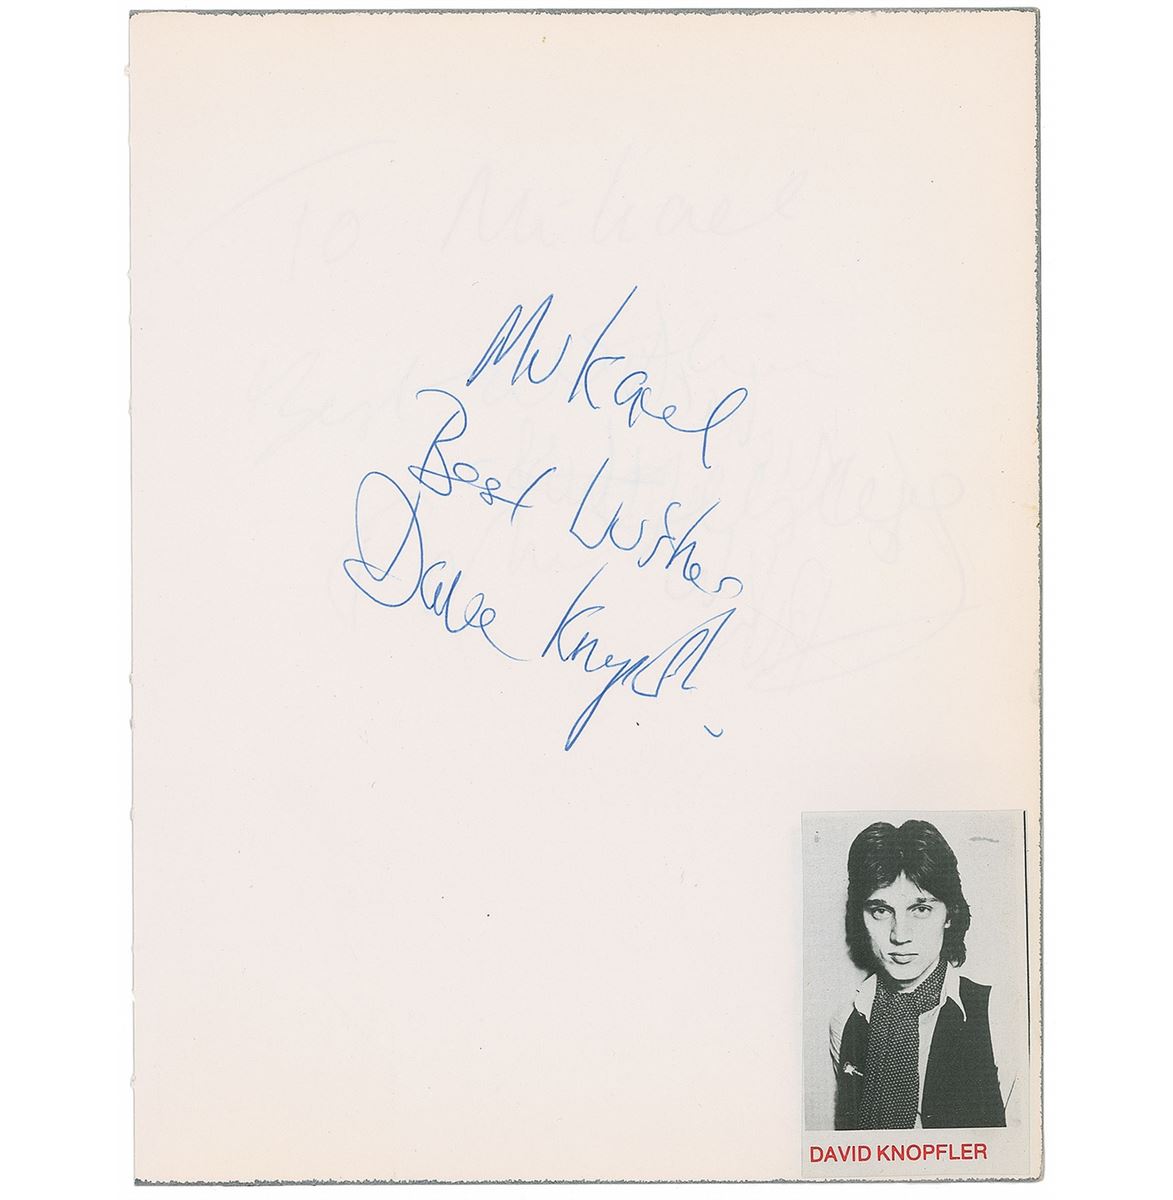 To Mikael
Mikael
Best Wishes
Dave Knopfler
DAVID KNOPFLER